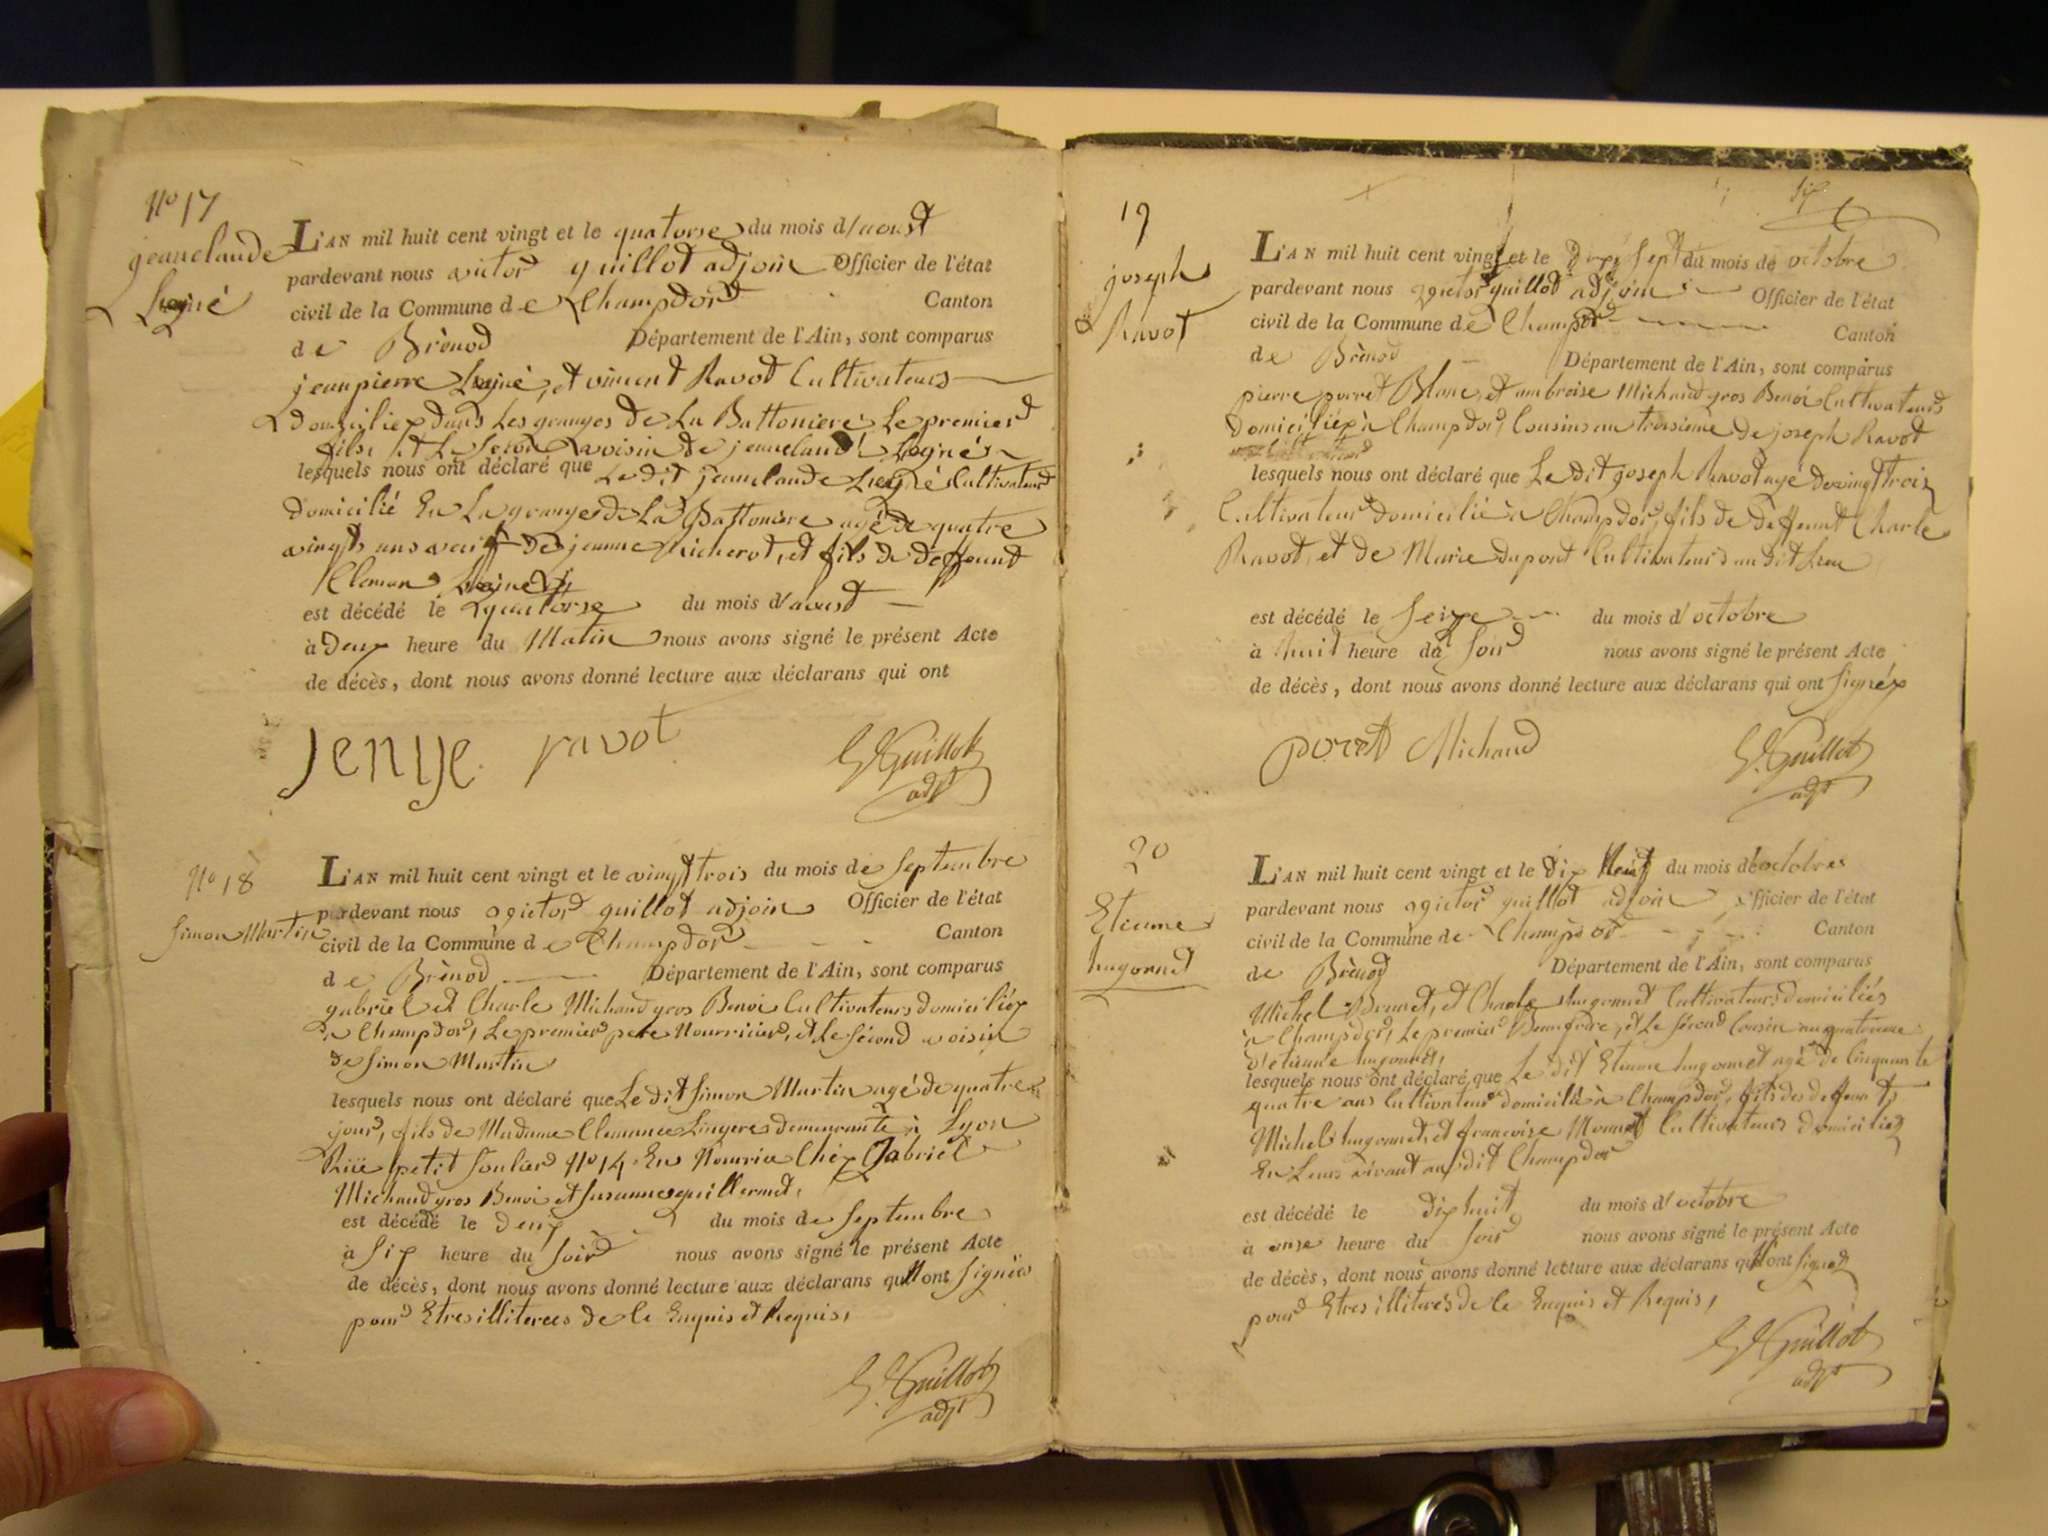 No 17
jeanclaude
L'AN mil huit cent vingt et le quatorse du mois d'aoust
pardevant nous victor guillot adjoin Officier de l'état
civil de la Commune de Champdor Canton
de Brènod Département de l'Ain, sont comparus
jeanpierre et vincend Ravot Cultivateurs
domiciliez dans Les granges de La Battoniere Le premier
fils, et Le second voisin de jeanclaude
lesquels nous ont déclaré que Le dit jeanclaude Cultivateur
domicilié En La grange de La Battoniere agé de quatre
vingts ans veuf de jeanne Richerot, et fils de deffeunt
Cleman
est décédé le quatorse du mois d'aoust
à deux heure du Matin nous avons signé le présent Acte
de décès, dont nous avons donné lecture aux déclarans qui ont
ravot
V Guillot
adjt
No 18
Simon Martin
L'AN mil huit cent vingt et le vingt trois du mois de Septembre
pardevant nous victor guillot adjoin Officier de l'état
civil de la Commune de Champdor Canton
de Brènod Département de l'Ain, sont comparus
gabriel et Charle Michaud gros Benoi Cultivateurs domiciliéz
à Champdor, Le premier pere Nourricier, et Le Sécond voisin
de Simon Martin
lesquels nous ont déclaré que Le dit Simon Martin agé de quatre
jour, fils de Madame Clemance Lingere demeurante à Lyon
Rüe petit Soulier No 14 En Nourrice Chéz Gabriel
Michaud gros Benoi et Susanne guillermet,
est décédé le deux du mois de Septembre
à Six heure du Soir nous avons signé le présent Acte
de décès, dont nous avons donné lecture aux déclarans qui n'ont Signées
pour Etres illiterees de le Enquis et Requis,
V. Guillot
adjt
19
joseph
Ravot
L'AN mil huit cent vingt et le dix Sept du mois de octobre
pardevant nous victor guillot adjoin Officier de l'état
civil de la Commune de Champdor Canton
de Brènod Département de l'Ain, sont comparus
pierre porret Blanc, et ambroise Michaud gros Benoi Cultivateurs
domiciliéz à Champdor, Cousins au troisieme de joseph Ravot
lesquels nous ont déclaré que Le dit joseph Ravot agé de vingt trois
Cultivateur domicilié à Champdor, fils de deffeunt Charle
Ravot, et de Marie dupont Cultivateurs au dit Lieu
est décédé le Seize du mois d'octobre
à huit heure du Soir nous avons signé le présent Acte
de décès, dont nous avons donné lecture aux déclarans qui ont Signéz
poret Michaud
V. Guillot
adjt
20
Etienne
hugonnet
L'AN mil huit cent vingt et le dix Neuf du mois de octobre
pardevant nous victor guillot adjoin Officier de l'état
civil de la Commune de Champdor Canton
de Brènod Département de l'Ain, sont comparus
Michel Brunet, et Charle hugonnet Cultivateurs domiciliés
à Champdor, Le premier Beaufrere, et Le sécond Cousin au quatrieme
d'etienne hugonnet,
lesquels nous ont déclaré que Le dit Etienne hugonnet agé de Cinquante
quatre ans Cultivateur domicilié à Champdor, fils des deffeunts
Michel hugonnet, et francoise Monnet Cultivateurs domiciliez
En Leurs vivant audit Champdor
est décédé le dix huit du mois d'octobre
à onse heure du Soir nous avons signé le présent Acte
de décès, dont nous avons donné lecture aux déclarans qui n'ont Signé
pour Etres illiterés de le Enquis et Requis,
V Guillot
adjt